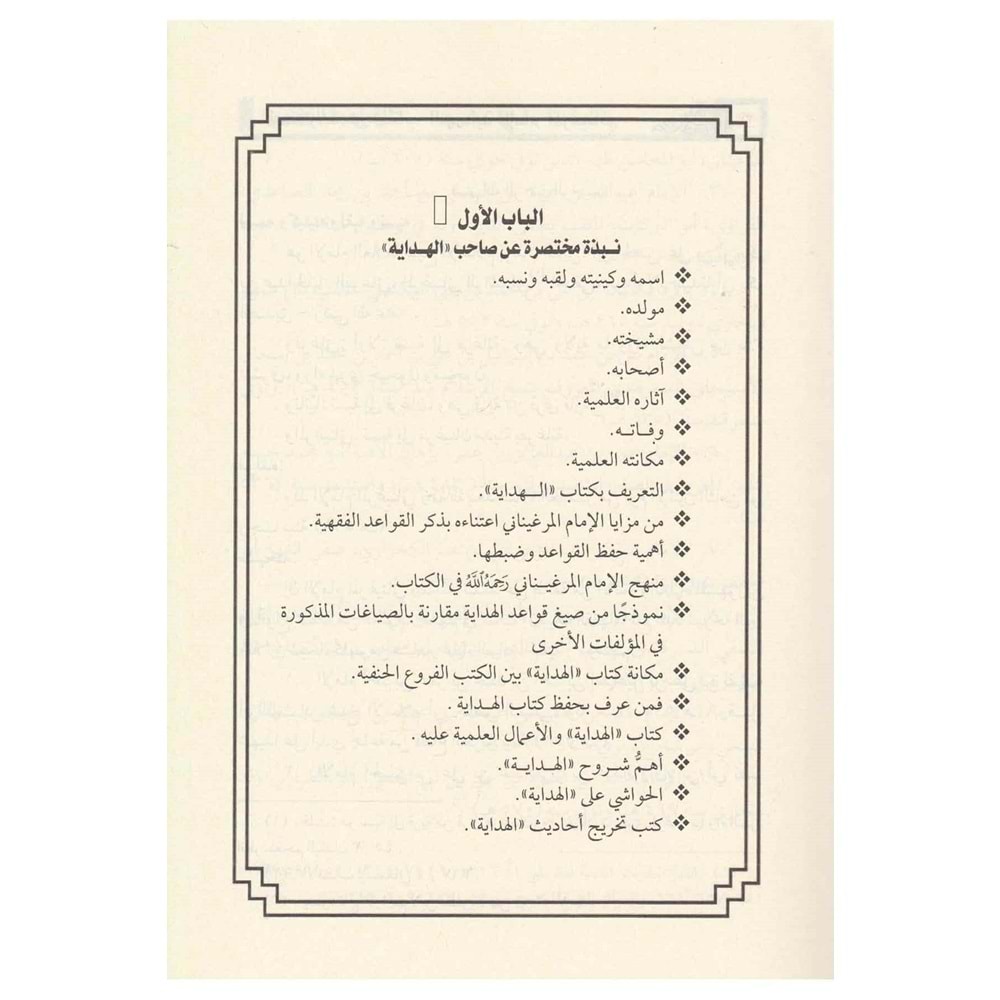 الباب الأول
نبذة مختصرة عن صاحب «الهداية»
❖ اسمه وكينيته ولقبه ونسبه.
❖ مولده.
❖ مشيخته.
❖ أصحابه.
❖ آثاره العلمية.
❖ وفاته.
❖ مكانته العلمية.
❖ التعريف بكتاب «الهداية».
❖ من مزايا الإمام المرغيناني اعتناءه بذكر القواعد الفقهية.
❖ أهمية حفظ القواعد وضبطها.
❖ منهج الإمام المرغيناني رَحِمَهُ ٱللَّهُ في الكتاب.
❖ نموذجًا من صيغ قواعد الهداية مقارنة بالصياغات المذكورة
في المؤلفات الأخرى
❖ مكانة كتاب «الهداية» بين الكتب الفروع الحنفية.
❖ فمن عرف بحفظ كتاب الهداية .
❖ كتاب «الهداية» والأعمال العلمية عليه .
❖ أهمُّ شروح «الهداية».
❖ الحواشي على «الهداية».
❖ كتب تخريج أحاديث «الهداية».